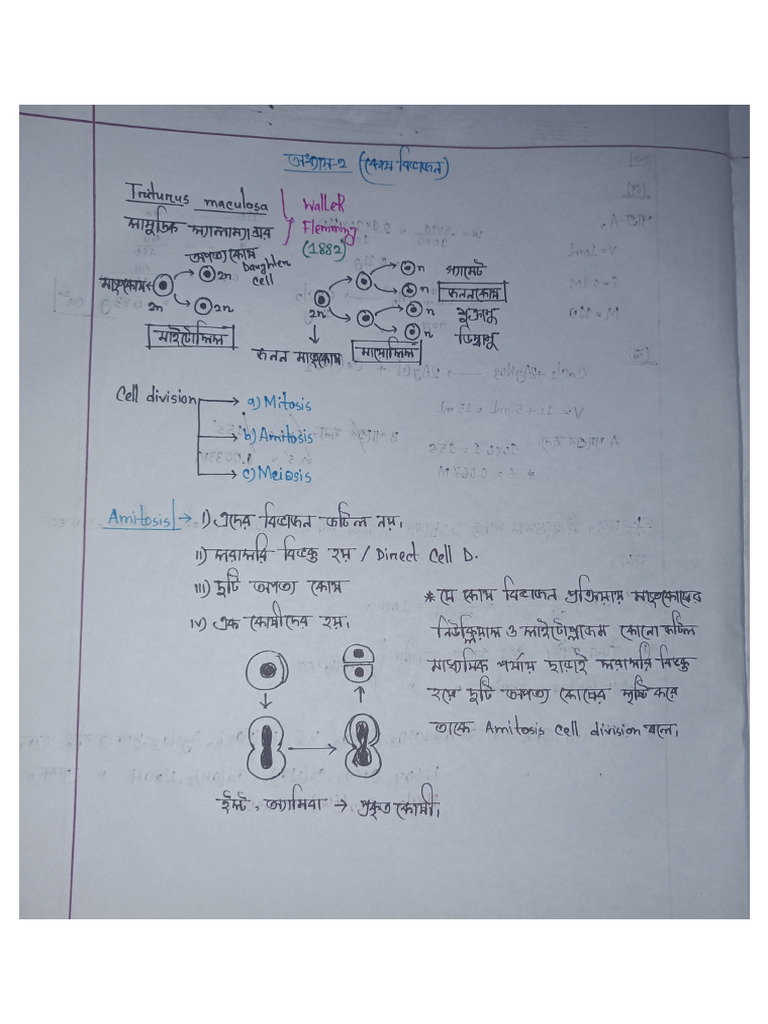 অধ্যায়-২ (কোষ বিভাজন)
Triturus maculosa
Walter
সামুদ্রিক স্যালামান্ডার
Flemming
(1882)
অপত্য কোষ
Daughter
Cell
মাতৃকোষ
2n
2n
2n
মাইটোসিস
2n
n
n
n
n
গ্যামেট
জননকোষ
শুক্রাণু
ডিম্বাণু
জনন মাতৃকোষ
মায়োসিস
Cell division
a) Mitosis
b) Amitosis
c) Meiosis
Amitosis → i) এদের বিভাজন জটিল নয়।
ii) সরাসরি বিভক্ত হয় / Direct Cell D.
iii) দুটি অপত্য কোষ
iv) এক কোষীদের হয়।
* যে কোষ বিভাজন প্রক্রিয়ায় মাতৃকোষের
নিউক্লিয়াস ও সাইটোপ্লাজম কোনো জটিল
মাধ্যমিক পর্যায় ছাড়াই সরাসরি বিভক্ত
হয়ে দুটি অপত্য কোষের সৃষ্টি করে
তাকে Amitosis Cell division বলে।
ইস্ট, অ্যামিবা → প্রকৃত কোষী।